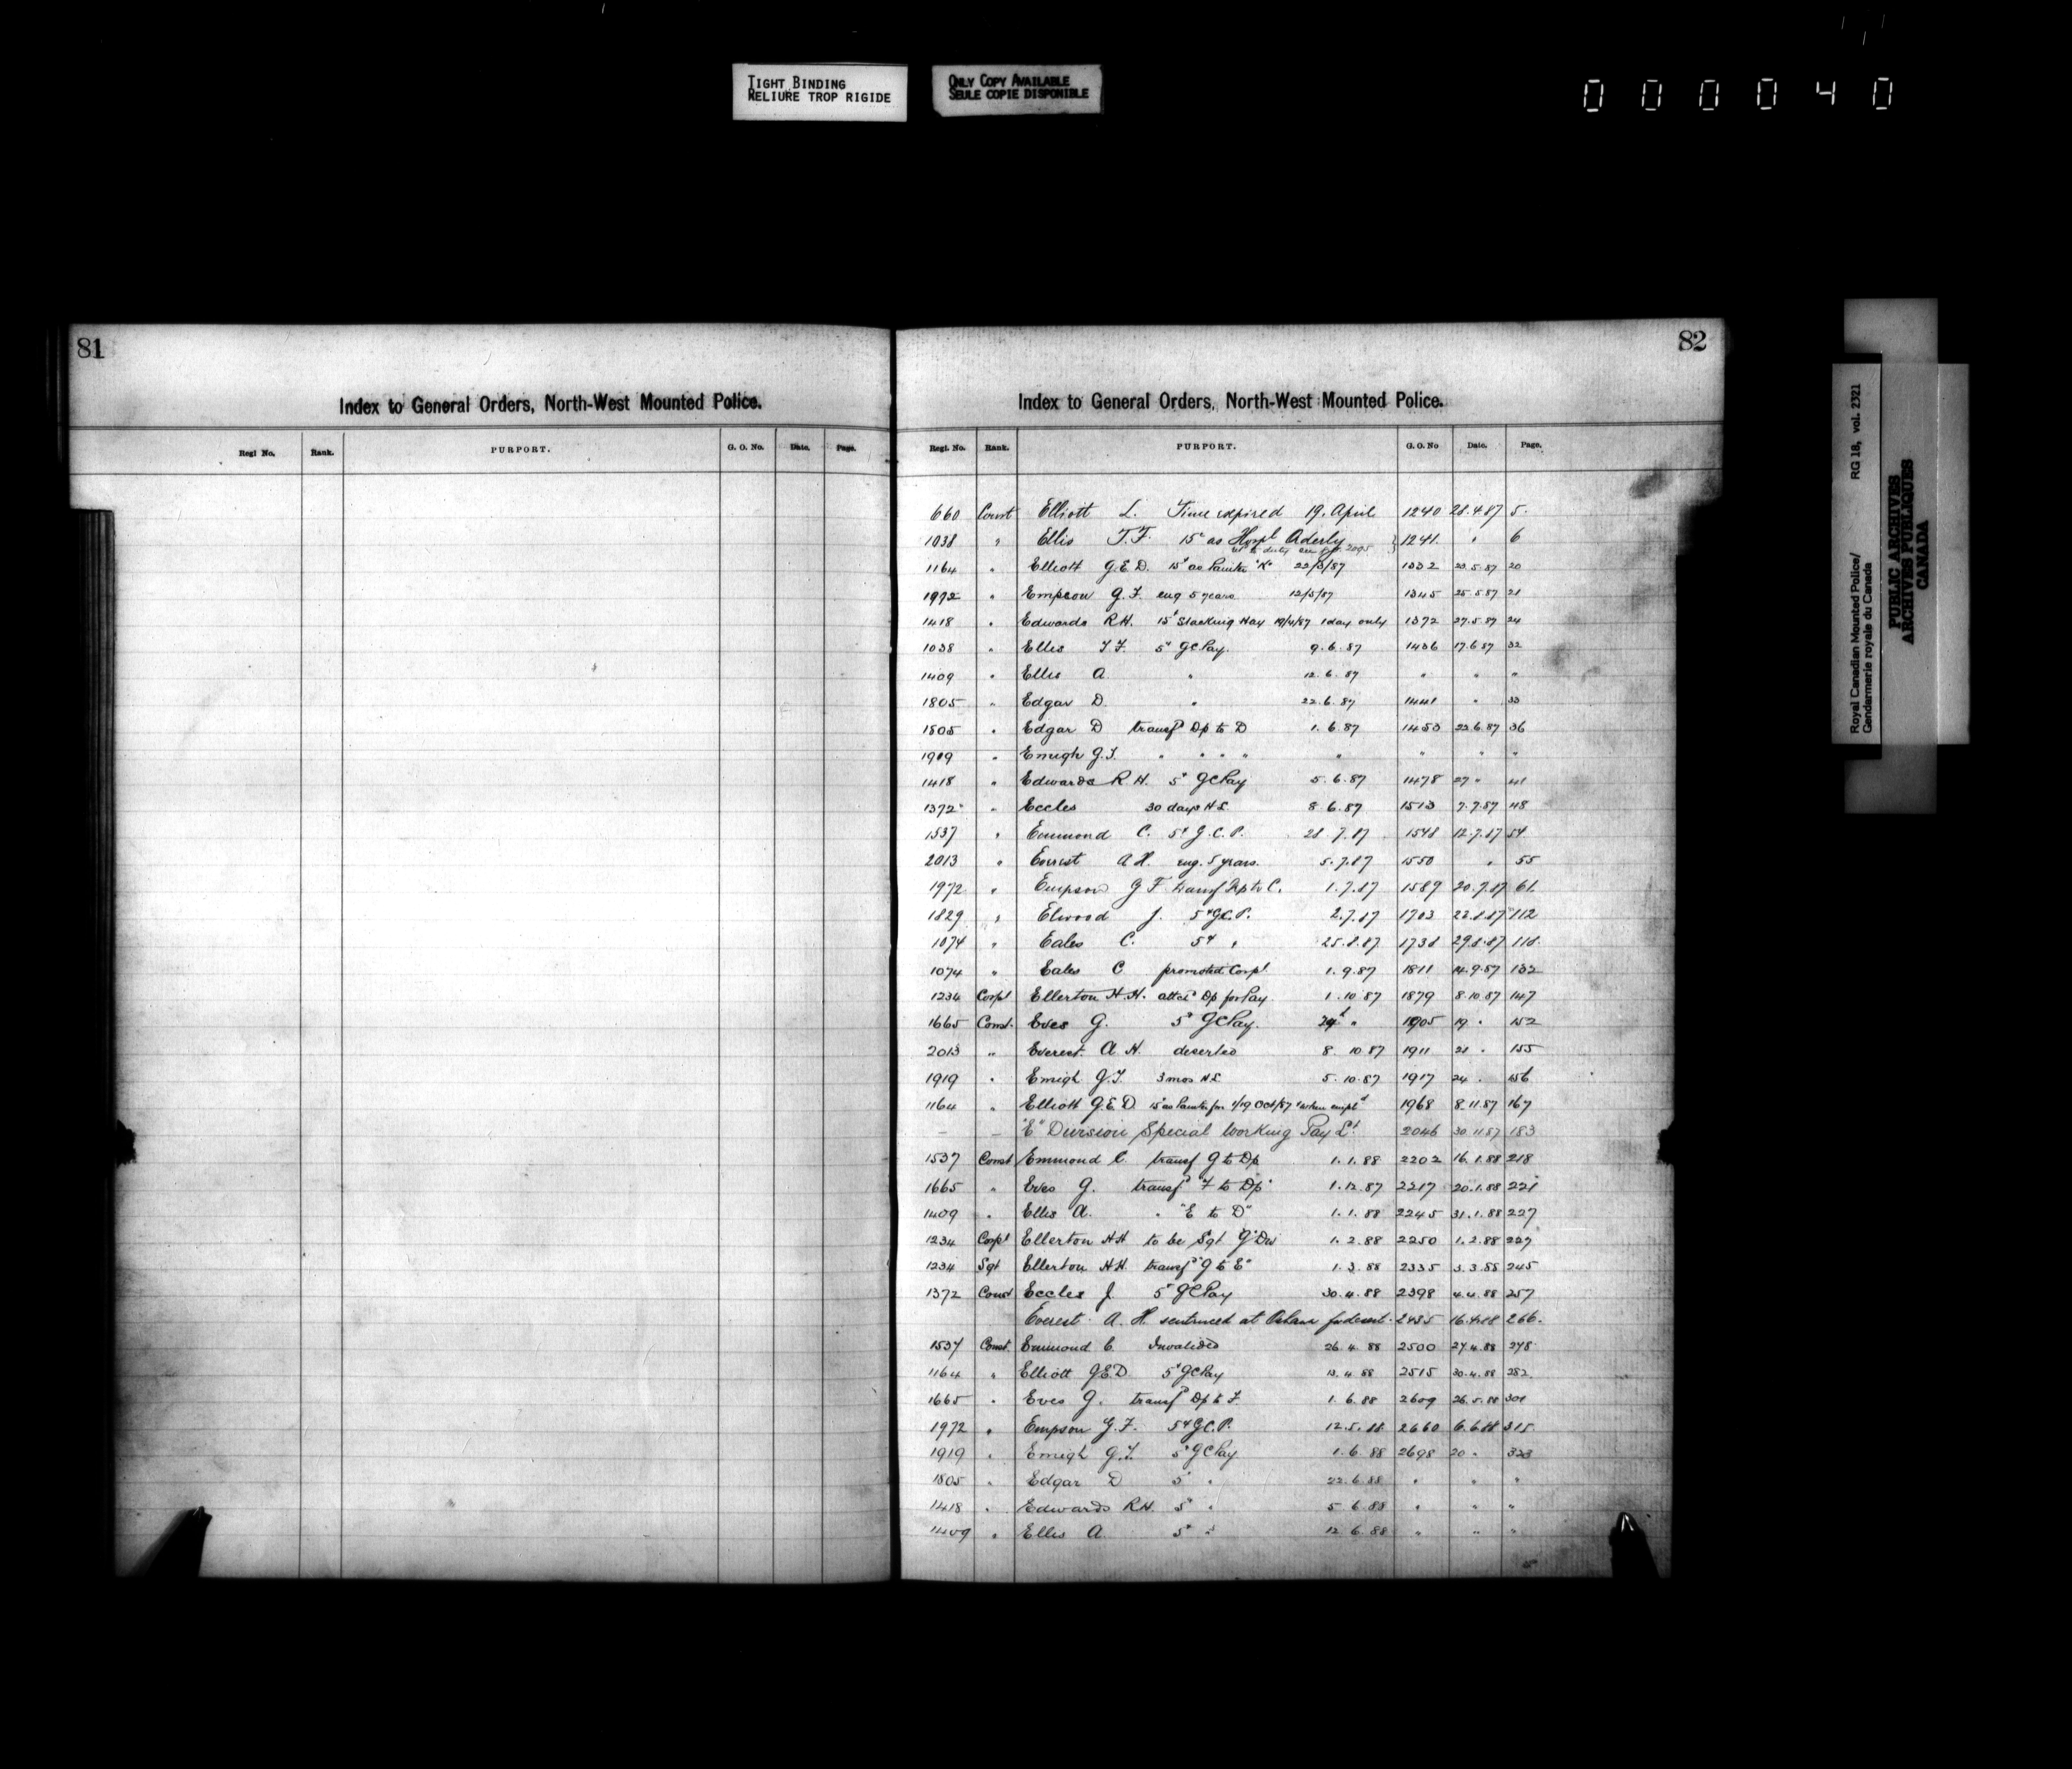 TIGHT BINDING
RELIURE TROP RIGIDE
ONLY COPY AVAILABLE
SEULE COPIE DISPONIBLE
000040
81
Index to General Orders, North-West Mounted Police.
Regl No. Rank. PURPORT. G. O. No. Date. Page.
82
Index to General Orders, North-West Mounted Police.
Regl. No. Rank. PURPORT. G. O. No Date. Page.
660 Const Elliott L. Time expired 19. April 1240 28.4.87 5.
1038 " Ellis T.F. 15c as Hospl Orderly } 1241. " 6
to duty see 2095
1164 " Elliott G.E.D. 15c as Painter "K" 22/3/87 1332 23.5.87 20
1972 " Empson G.F. eng 5 years 12/5/87 1345 25.5.87 21
1418 " Edwards R.H. 15c Stacking Hay 19/4/87 1 day only 1372 27.5.87 24
1038 " Ellis T.F. 5c GC Pay. 9.6.87 1436 17.6.87 32
1409 " Ellis A. " 12.6.87 " " "
1805 " Edgar D. " 22.6.87 1441 " 33
1805 " Edgar D transfd Dp to D 1.6.87 1453 22.6.87 36
1919 " Emigh G.T. " " " " " " " "
1418 " Edwards R H. 5c GC Pay 5.6.87 1478 27 " 41
1372 " Eccles 30 days H.L. 8.6.87 1513 7.7.87 48
1537 " Emmond C. 5c G.C.P. 28.7.87 1548 12.7.87 54
2013 " Everest A H. eng. 5 years. 5.7.87 1550 " 55
1972 " Empson G F transf Dp to C. 1.7.87 1589 20.7.87 61
1829 " Elwood J. 5c G.C.P. 2.7.87 1703 22.8.87 112
1074 " Eales C. 5c " 25.8.87 1738 29.8.87 118.
1074 " Eales C promoted Corpl 1.9.87 1811 14.9.87 132
1234 Corpl Ellerton H.H. attcd Dp for Pay. 1.10.87 1879 8.10.87 147
1665 Const. Eves G. 5c GC Pay. 24 " 1905 19 " 152
2013 " Everest A. H. deserted 8. 10 87 1911 21 " 155
1919 " Emigh G.T. 3 mos H.L 5.10.87 1917 24 " 156
1164 " Elliott G.E.D. 15c as Painter fm 1/19 Oct/87 when empld 1968 8.11.87 167
– – "E" Division Special Working Pay Lt. 2046 30.11.87 183
1537 Const Emmond C. transf G to Dp 1.1.88 2202 16.1.88 218
1665 " Eves G. transfd "F to Dp" 1.12.87 2217 20.1.88 221
1409 " Ellis A. " "E to D" 1.1.88 2245 31.1.88 227
1234 Corpl Ellerton H.H. to be Sgt "G" Div 1.2.88 2250 1.2.88 229
1234 Sgt Ellerton H.H. transfd "G to E" 1.3.88 2335 3.3.88 245
1372 Const Eccles J 5c GC Pay 30.4.88 2398 4.4.88 257
Everest A. H. sentenced at for desert. 2435 16.4.88 266.
1537 Const. Emmond C. Invalided 26.4.88 2500 27.4.88 278
1164 " Elliott G.E.D. 5c GC Pay 13.4.88 2515 30.4.88 282.
1665 " Eves G. transfd Dp to F. 1.6.88 2609 26.5.88 301
1972 " Empson G.F. 5c G.C.P. 12.5.88 2660 6.6.88 315
1919 " Emigh G.T. 5c GC Pay 1.6.88 2698 20 " 323
1805 " Edgar D 5c " 22.6.88 " " "
1418 " Edwards R.H. 5c " 5 6.88 " " "
1409 " Ellis A. 5c " 12 6.88 " " "
Royal Canadian Mounted Police/ RG 18, vol. 2321
Gendarmerie royale du Canada
PUBLIC ARCHIVES
ARCHIVES PUBLIQUES
CANADA